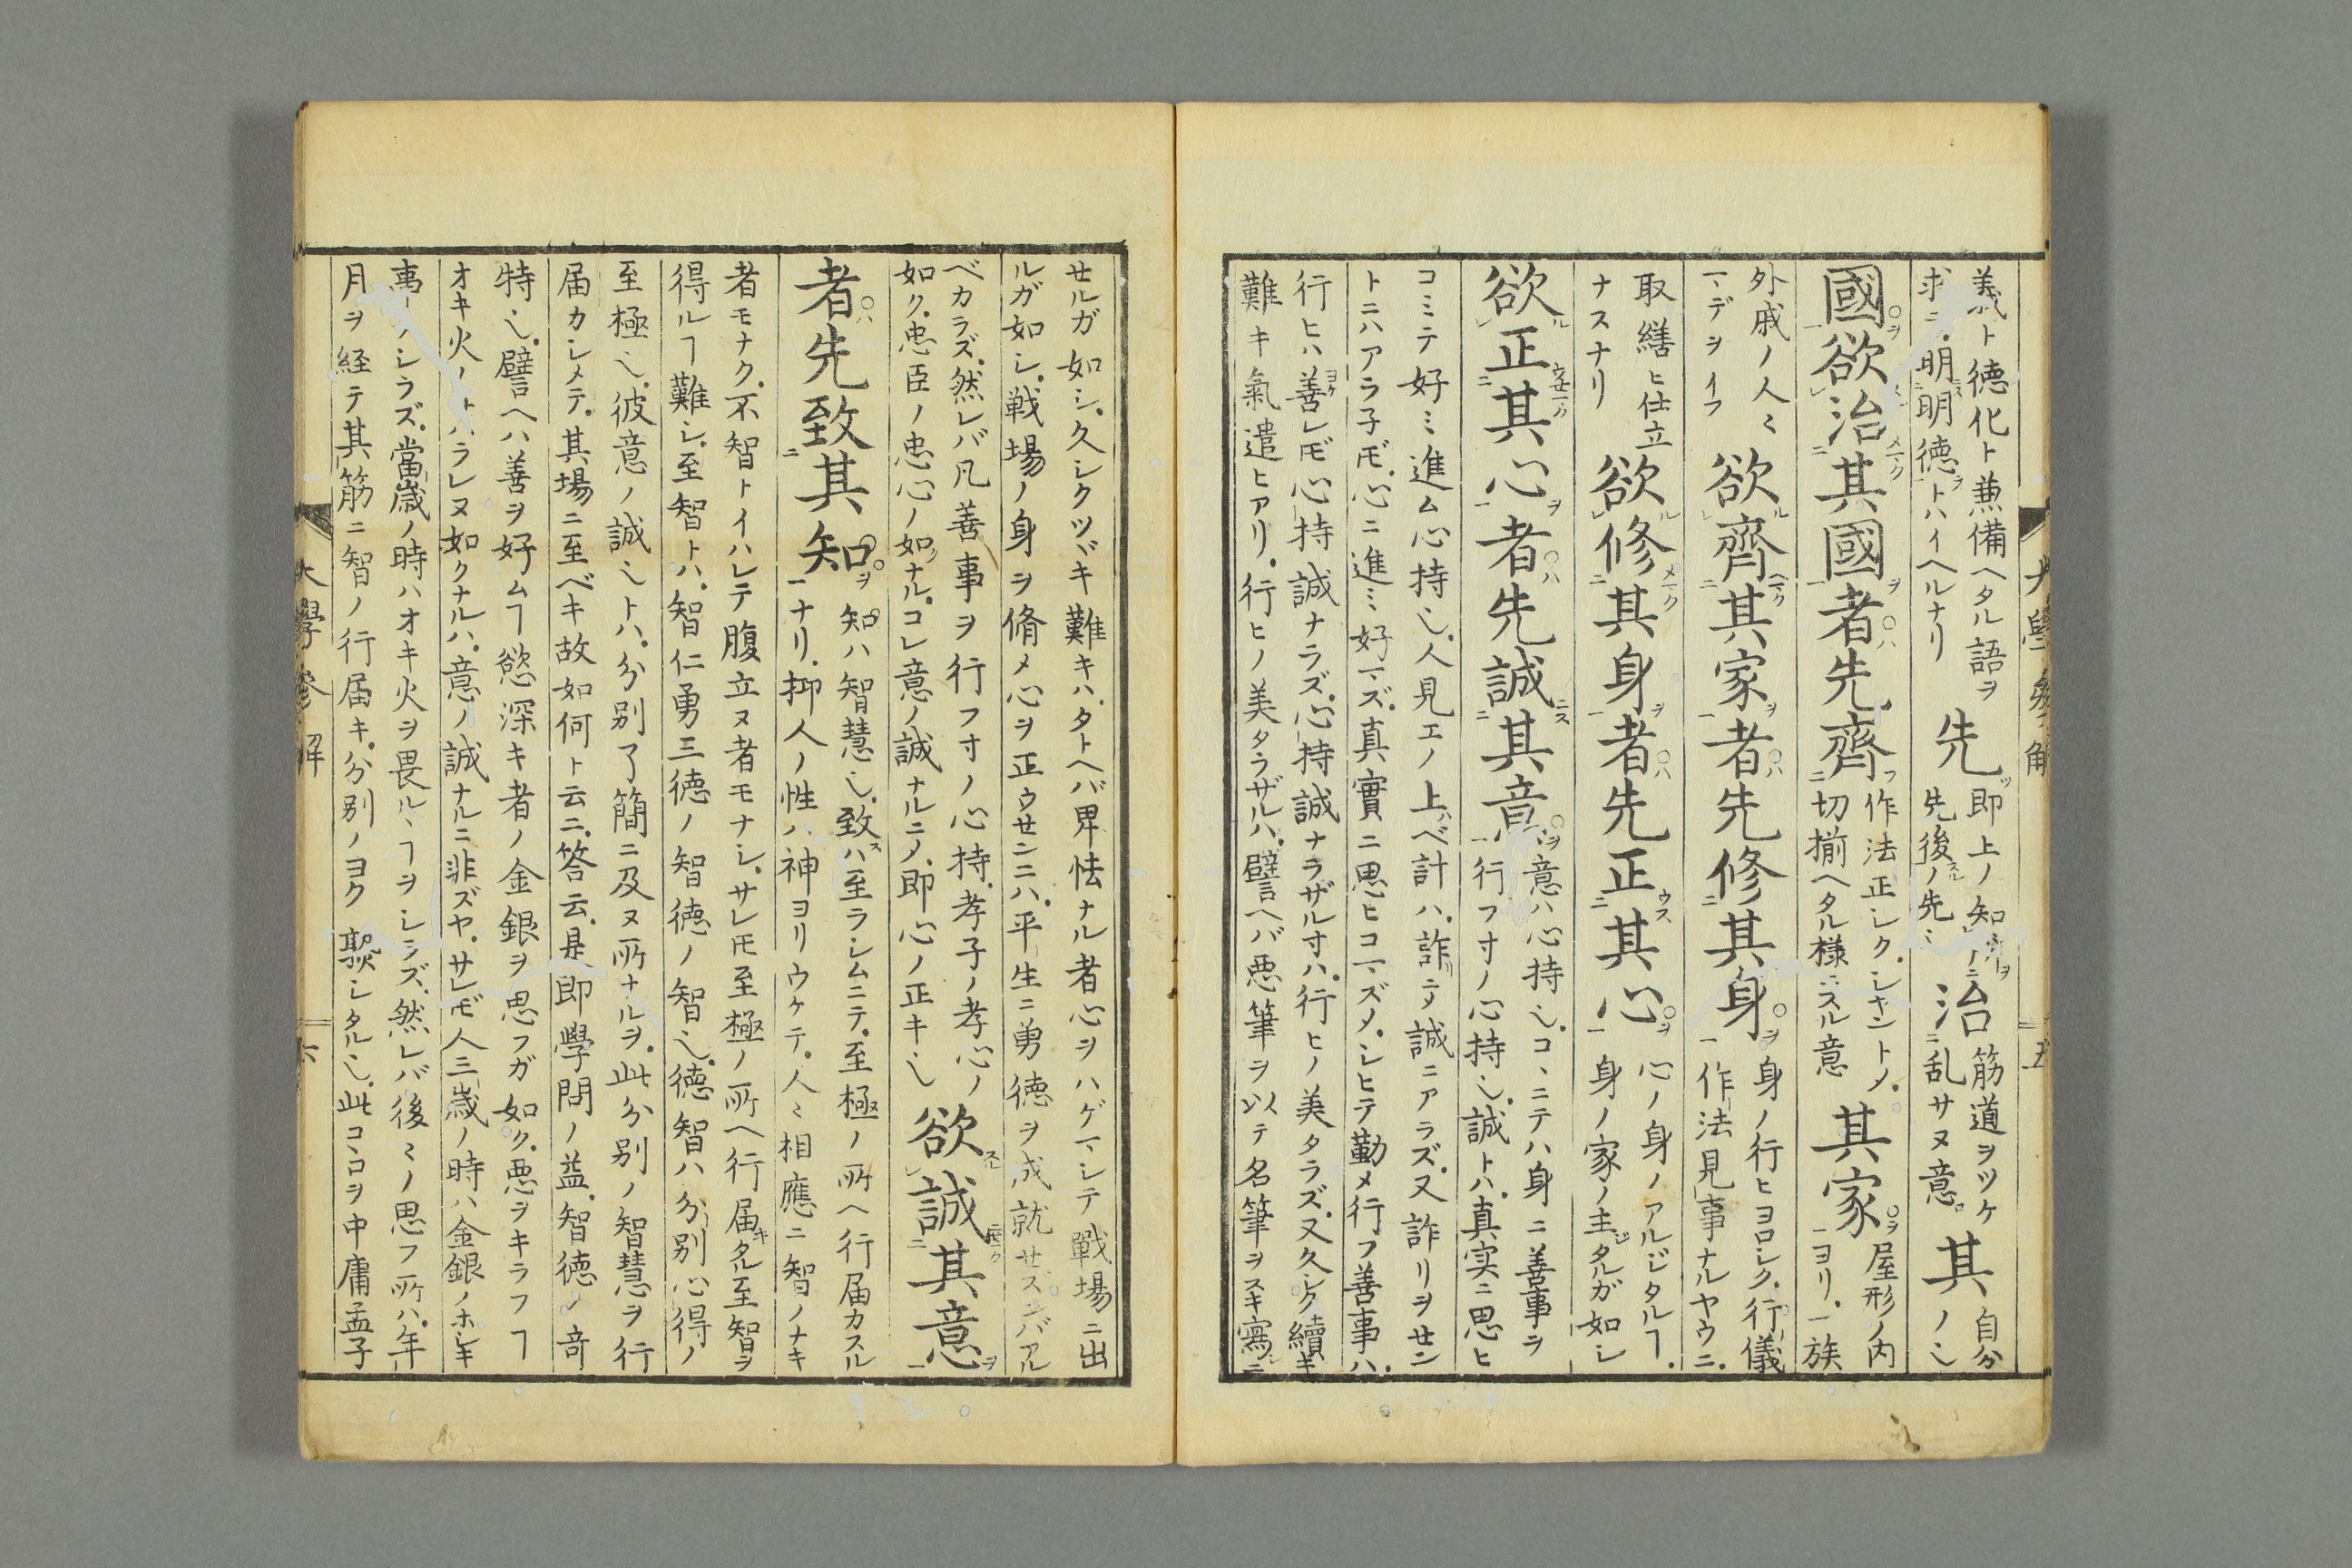 義ト徳化ト兼備ヘタル語ヲ
求ニ明明徳トハイヘルナリ
先
即上ノ知
先後ノ先
治
筋道ヲツケ
乱サヌ意
其
自分
ノ〆
國欲治其國者先齊
作法正シク、シキントメ
切揃ヘタル様ニスル意
其家
屋形ノ内
ヨリ、一族
外戚ノ人々
マデヲイフ
欲齊其家者先修其身
身ノ行ヒヨロシク、行儀
作法見事ナルヤウニ
取繕ヒ仕立
ナスナリ
欲修其身者先正其心
心ノ身ノアルジタルヿ
身ノ家ノ主タルガ如シ
欲正其心者先誠其意
意ハ心持〆、コヽニテハ身ニ善事ヲ
行フ寸ノ心持〆、誠トハ、真実ニ思ヒ
コミテ好ミ進ム心持〆、人見エノ上ベ計ハ、詐ニテ誠ニアラズ、又詐リヲセン
トニハアラ子𪜈、心ニ進ミ好マズ、真實ニ思ヒコマズメ、シヒテ勤メ行フ善事ハ、
行ヒハ善シ𪜈心持誠ナラズ、心持誠ナラザル寸ハ、行ヒノ美タラズ、又久シク續キ
難キ氣遣ヒアリ、行ヒノ美タラザルハ、譬ヘバ悪筆ヲ以テ名筆ヲスキ寫ニ
大學參解
五
セルガ如シ、久シクツヾキ難キハ、タトヘバ畀怯ナル者心ヲハゲマシテ戰場ニ出
ルガ如シ、戦場ノ身ヲ脩メ心ヲ正ウセンニハ、平生ニ勇徳ヲ成就セズンバアル
ベカラズ、然レバ凡善事ヲ行フ寸ノ心持、孝子ノ孝心ノ
如ク、忠臣ノ忠心ノ如ナル、コレ意ノ誠ナルニメ、即心ノ正キ〆
欲誠其意
者先致其知
知ハ智慧〆、致ハ至ラシムニテ、至極ノ所ヘ行届カスル
ナリ、抑人ノ性ハ神ヨリウケテ、人々相應ニ智ノナキ
者モナク、不智トイハレテ腹立ヌ者モナシ、サレ𪜈至極ノ所ヘ行届キタル至智ヲ
得ルヿ難シ、至智トハ、智仁勇三徳ノ智徳ノ智〆、徳智ハ分別心得ノ
至極〆、彼意ノ誠〆トハ、分別了簡ニ及ヌ所ナルヲ、此分別ノ智慧ヲ行
届カシメテ、其場ニ至ベキ故如何ト云ニ、答云、是即學問ノ益、智徳ノ竒
特〆、譬ヘハ善ヲ好ムヿ慾深キ者ノ金銀ヲ思フガ如ク、悪ヲキラフヿ
オキ火ノトハラレヌ如クナルハ、意ノ誠ナルニ非ズヤ、サレ𪜈人三歳ノ時ハ金銀ノホシキ
萬ーノシラズ、當歳ノ時ハオキ火ヲ畏ルヽヿヲシラズ、然レバ後々ノ思フ所ハ、年
月ヲ経テ其筋ニ智ノ行届キ、分別ノヨク聚シタル〆、此コヽロヲ中庸孟子
大學參解
六